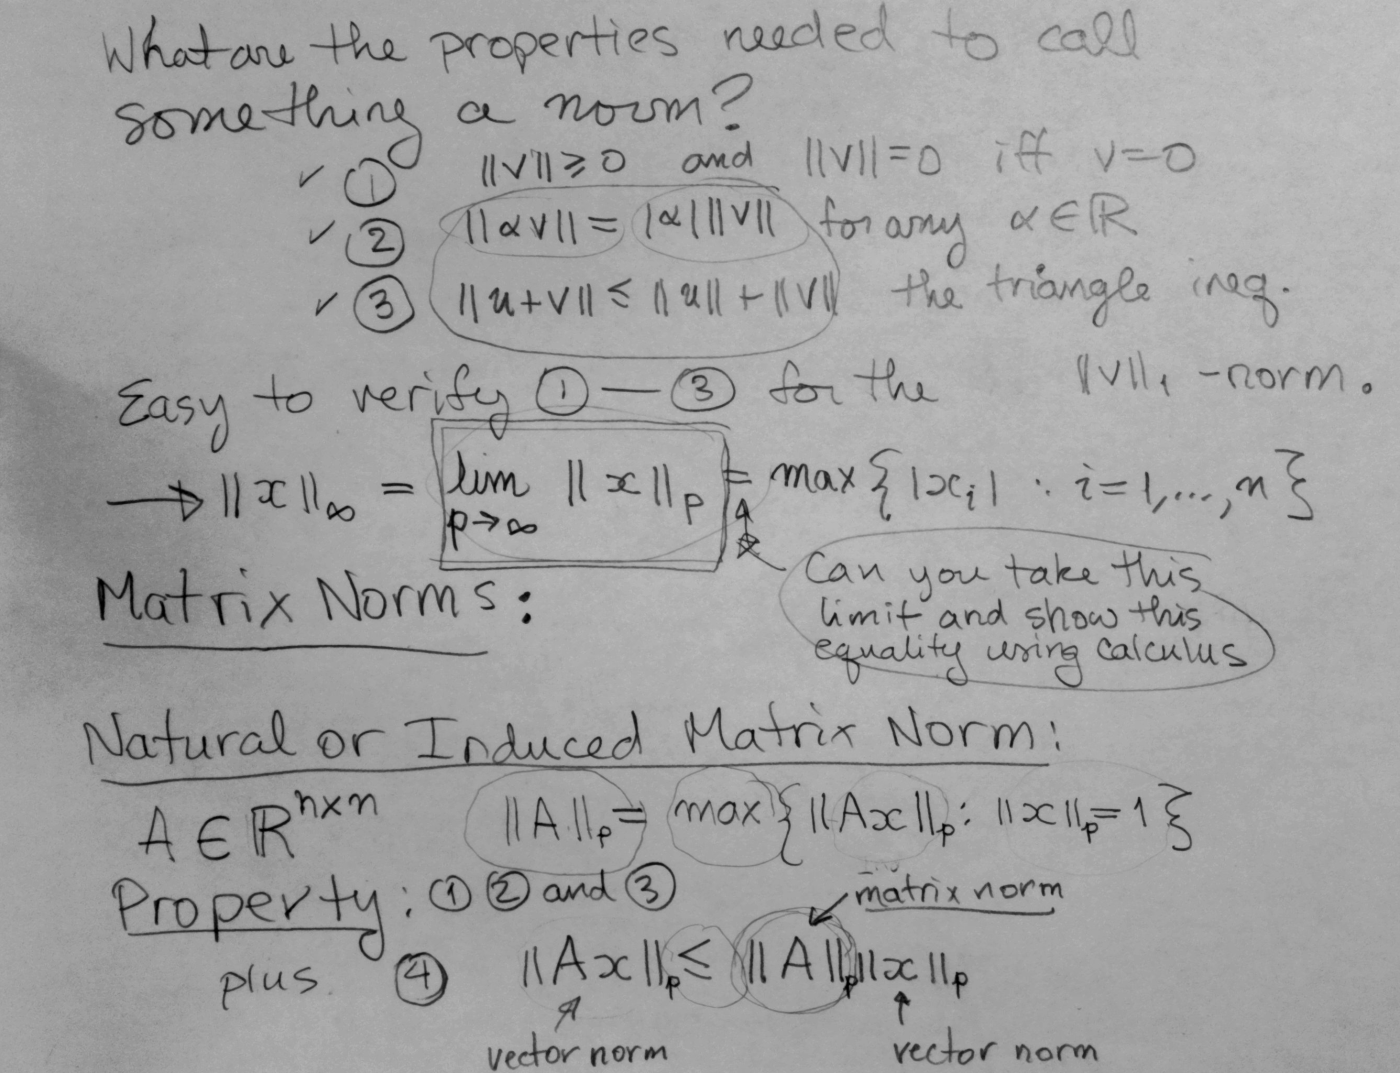 What are the properties needed to call
something a norm?
✓ ① ||v|| ≥ 0 and ||v|| = 0 iff v = 0
✓ ② ||αv|| = |α| ||v|| for any α ∈ ℝ
✓ ③ ||u+v|| ≤ ||u|| + ||v|| the triangle ineq.
Easy to verify ① — ③ for the ||v||₁ -norm.
→ ||x||_∞ = lim_{p→∞} ||x||_p = max{ |x_i| : i=1,...,n }
Can you take this
limit and show this
equality using calculus
Matrix Norms:
Natural or Induced Matrix Norm:
A ∈ ℝ^{n×n} ||A||_p = max{ ||Ax||_p : ||x||_p = 1 }
Property: ① ② and ③
matrix norm
plus ④ ||Ax||_p ≤ ||A||_p ||x||_p
vector norm vector norm